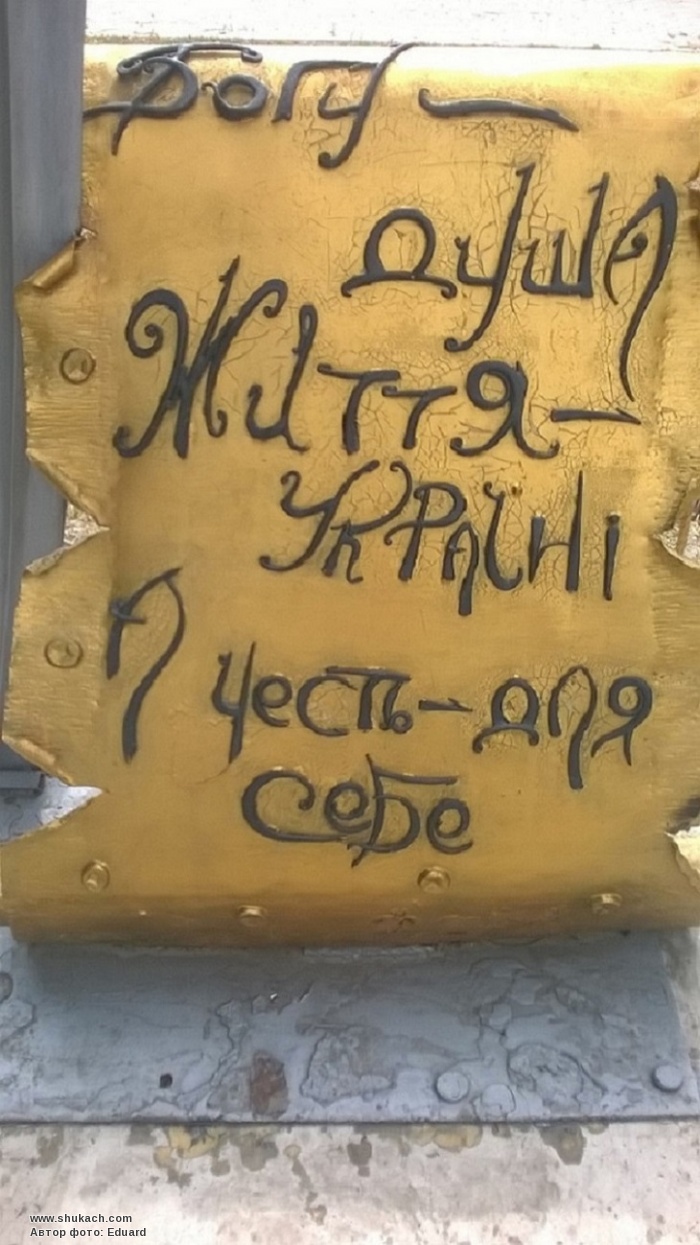 Богу —
душа
Життя —
Україні
А честь - для
себе
www.shukach.com
Автор фото: Eduard